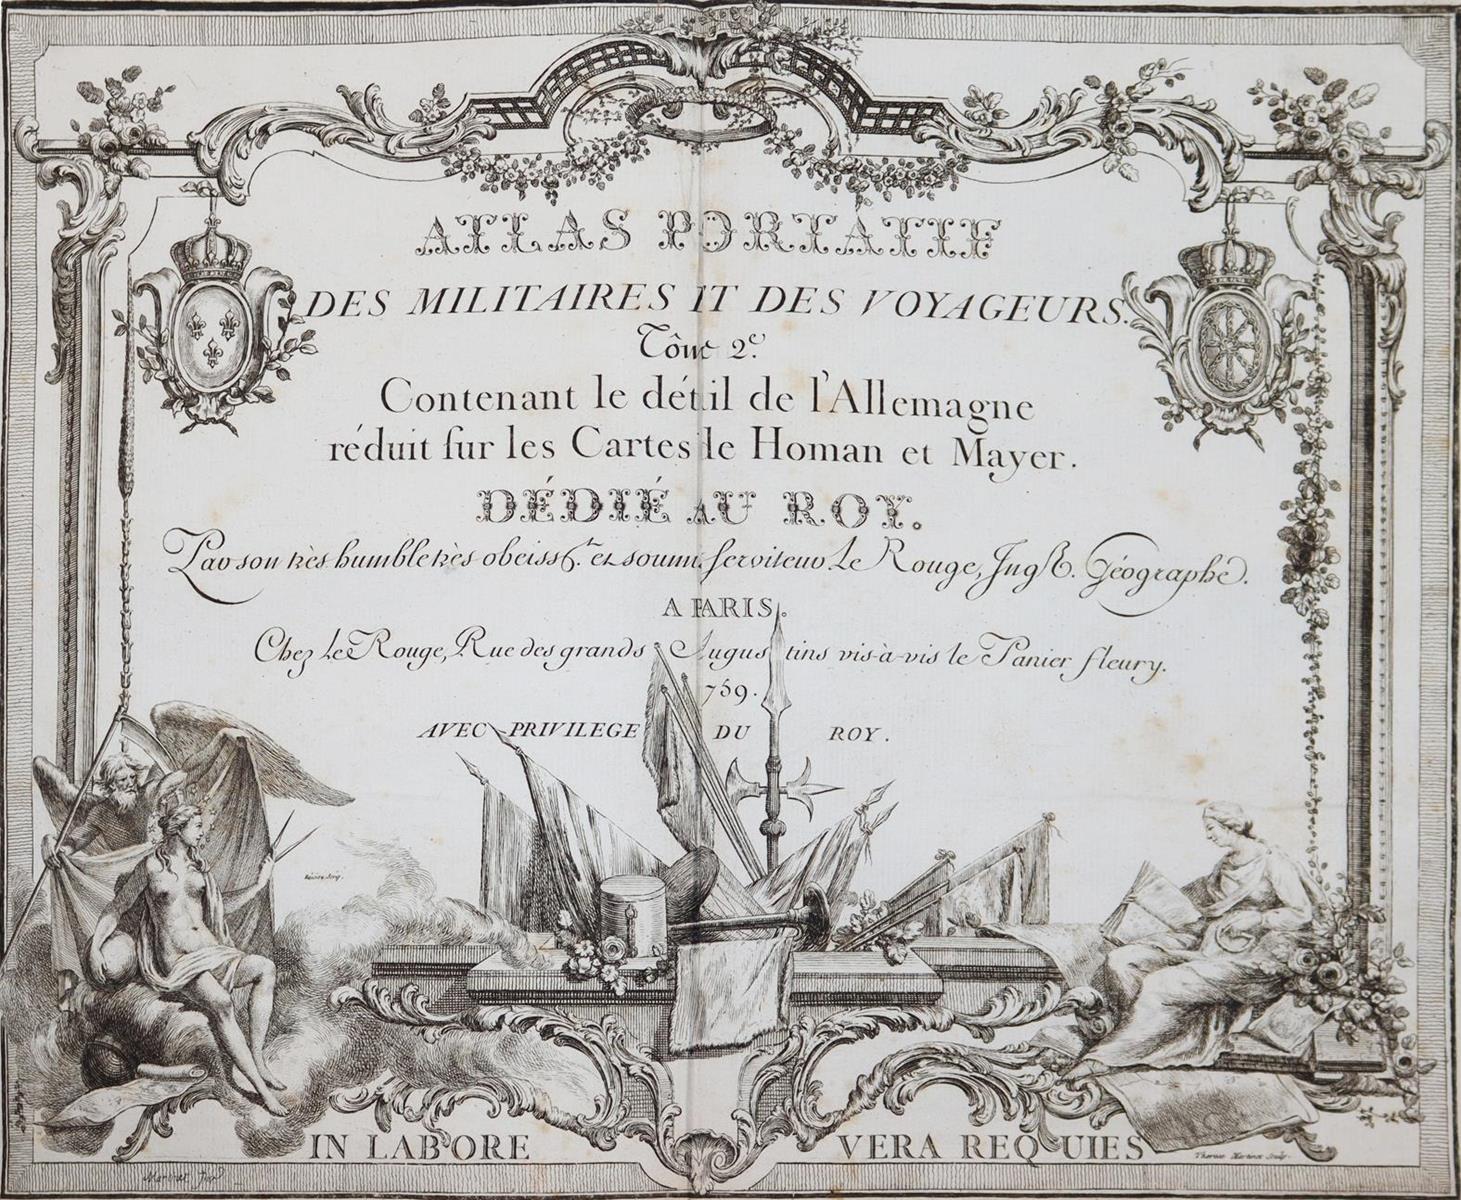 ATLAS PORTATIF
DES MILITAIRES ET DES VOYAGEURS.
Tôme 2.e
Contenant le détail de l'Allemagne
réduit sur les Cartes de Homan et Mayer.
DÉDIÉ AU ROY.
Par son très humble très obeiss.t et soumis serviteur Le Rouge, Ing.r Géographe.
A PARIS.
Chez le Rouge, Rue des grands Augustins vis-à-vis le Panier fleury.
759.
AVEC PRIVILEGE DU ROY.
IN LABORE VERA REQUIES
Martinet
Therese Martinet Sculp.